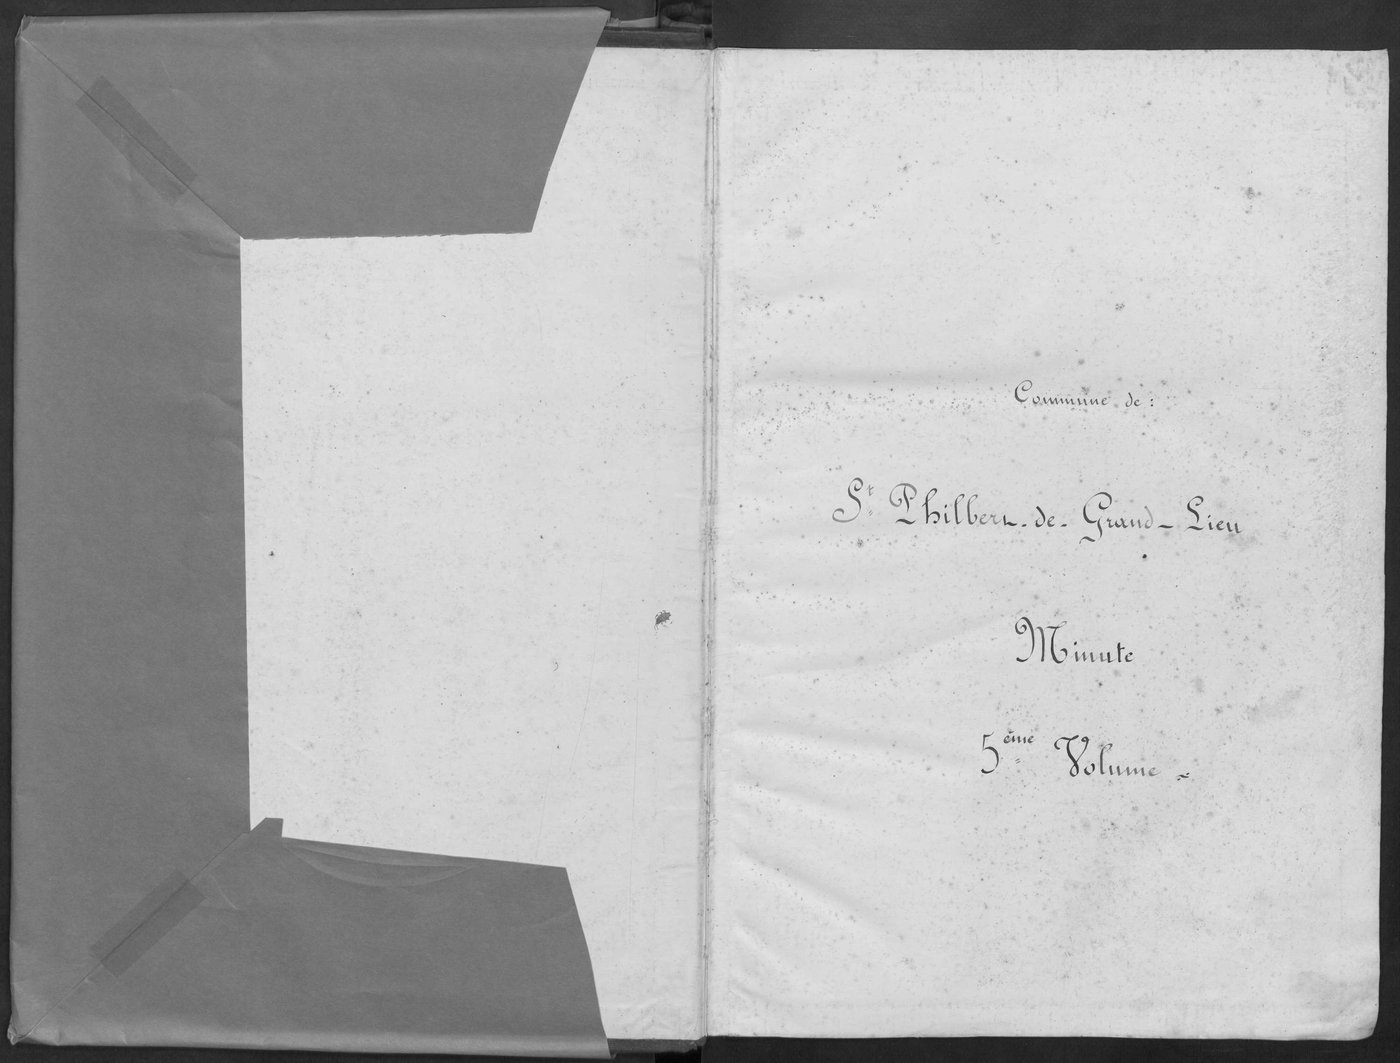 Commune de :
St Philbert-de-Grand-Lieu
Minute
5ème Volume